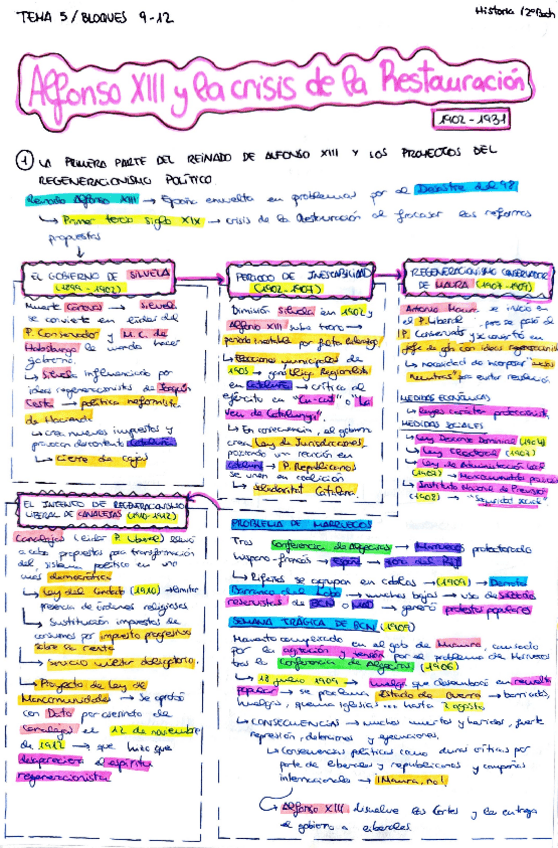 TEMA 5 / BLOQUES 9-12
Historia / 2ºBach
Alfonso XIII y la crisis de la Restauración
1902 - 1931
1 LA PRIMERA PARTE DEL REINADO DE ALFONSO XIII Y LOS PROYECTOS DEL
REGENERACIONISMO POLÍTICO
Reinado Alfonso XIII → España envuelta en problemas por el Desastre del 98
↳ Primer tercio siglo XIX → crisis de la Restauración al fracasar las reformas
propuestas
EL GOBIERNO DE SILVELA
(1899 - 1902)
Muerte Cánovas → Silvela
se convierte en líder del
P. Conservador y M.C. de
Habsburgo le manda hacer
gobierno.
↳ Silvela influenciado por
ideas regeneracionistas de Joaquín
Costa → política reformista
de Hacienda
↳ crea nuevos impuestos y
provocan descontento Cataluña
↳ Cierre de cajas
PERIODO DE INESTABILIDAD
(1902 - 1907)
Dimisión Silvela en 1902 y
Alfonso XIII sube trono →
periodo inestable por falta liderazgo
↳ Elecciones municipales de
1905 → gana Lliga Regionalista
en Cataluña → crítica al
ejército en "Cu-cut" o "La
Veu de Catalunya".
↳ En consecuencia, el gobierno
crea Ley de Jurisdicciones,
provocando una reacción en
Cataluña → P. Republicanos
se unen en coalición
↳ Solidaritat Catalana.
REGENERACIONISMO CONSERVADOR
DE MAURA (1907-1909)
Antonio Maura se inició en
el P. Liberal, pero se pasó al
P. Conservador y se convirtió en
jefe de gob con ideas regeneracionistas
↳ necesidad de incorporar "masas
neutras" para evitar revolución.
MEDIDAS ECONÓMICAS
↳ Leyes carácter proteccionista
MEDIDAS SOCIALES
↳ Ley Descanso Dominical (1904)
↳ Ley Electoral (1907)
↳ Ley de Administración Local
(1907) → Mancomunidades provinciales
↳ Instituto Nacional de Previsión
(1908) → "Seguridad social"
EL INTENTO DE REGENERACIONISMO
LIBERAL DE CANALEJAS (1910-1912)
Canalejas (líder P. Liberal) llevó
a cabo propuestas para transformación
del sistema político en uno
más democrático
↳ Ley del Candado (1910) → limitar
presencia de órdenes religiosas
↳ Sustitución impuestos de
consumos por impuesto progresivo
sobre la renta
↳ Servicio militar obligatorio.
↳ Proyecto de Ley de
Mancomunidades → se aprobó
con Dato por asesinato de
Canalejas el 12 de noviembre
de 1912 → que hizo que
desapareciera el espíritu
regeneracionista
PROBLEMA DE MARRUECOS
Tras Conferencia de Algeciras → Marruecos protectorado
hispano-francés → España → zona del Rif
↳ Rifeños se agrupan en cabilas → (1909) → Derrota
Barranco del Lobo → muchas bajas → uso de soldados
reservistas de BCN o MAD → generó protestas populares
SEMANA TRÁGICA DE BCN (1909)
Momento complicado en el gob de Maura, causado
por la agitación y tensión por el problema de Marruecos
tras la Conferencia de Algeciras (1906)
↳ 18 julio 1909 → huelga que desembocó en revuelta
popular → se proclama Estado de Guerra → barricadas,
huelgas, quema iglesias... hasta 2 agosto
↳ CONSECUENCIAS → muchos muertos y heridos, fuerte
represión, detenciones y ejecuciones.
↳ Consecuencias políticas como duras críticas por
parte de liberales y republicanos y campañas
internacionales → ¡Maura, no!
↳ Alfonso XIII disuelve las Cortes y la entrega
el gobierno a liberales.